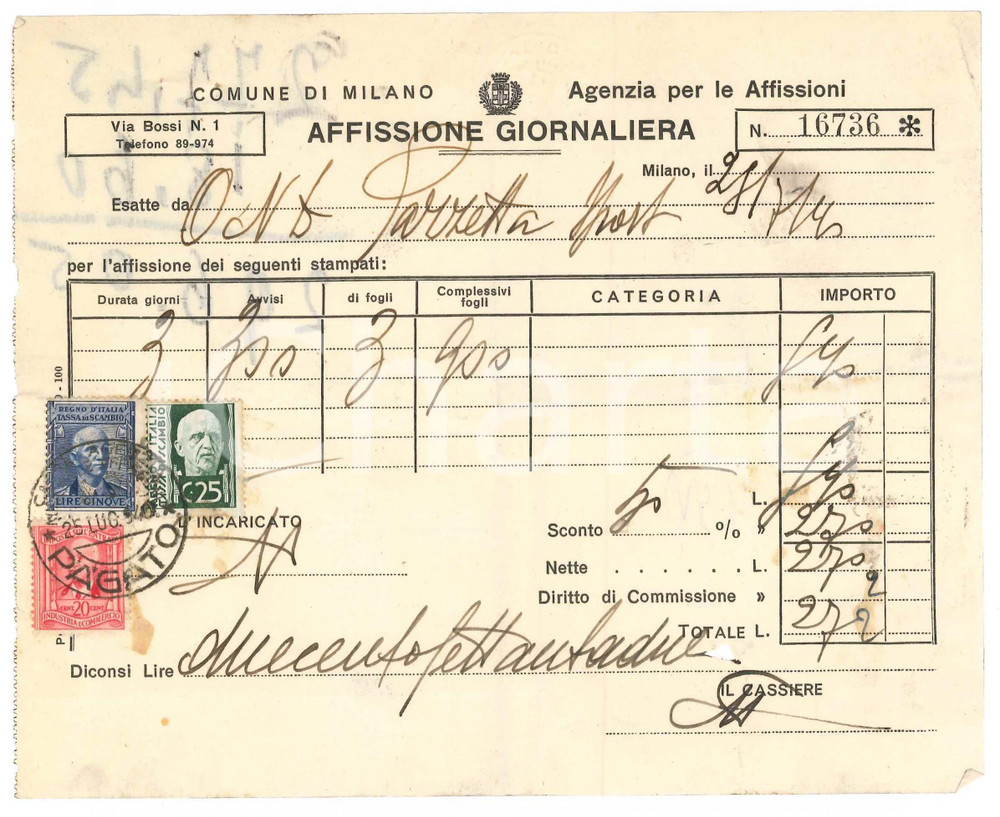 COMUNE DI MILANO
Agenzia per le Affissioni
Via Bossi N. 1
Telefono 89-974
AFFISSIONE GIORNALIERA
N. 16736 *
Milano, il 25/7/
Esatte da OND Gazzetta Sport
per l'affissione dei seguenti stampati:
Durata giorni Avvisi di fogli Complessivi fogli CATEGORIA IMPORTO
3 300 3 900 540
REGNO D'ITALIA
TASSA DI SCAMBIO
LIRE CINQUE
ITALIA
SCAMBIO
C. 25
L. 540
25 LUG
PAGATO
L'INCARICATO
Sconto 50 % » 270
Nette . . . . . . . L. 270
Diritto di Commissione » 2
CENT. 20 CENT.
INDUSTRIA E COMMERCIO
TOTALE L. 272
Diconsi Lire duecentosettantadue
IL CASSIERE